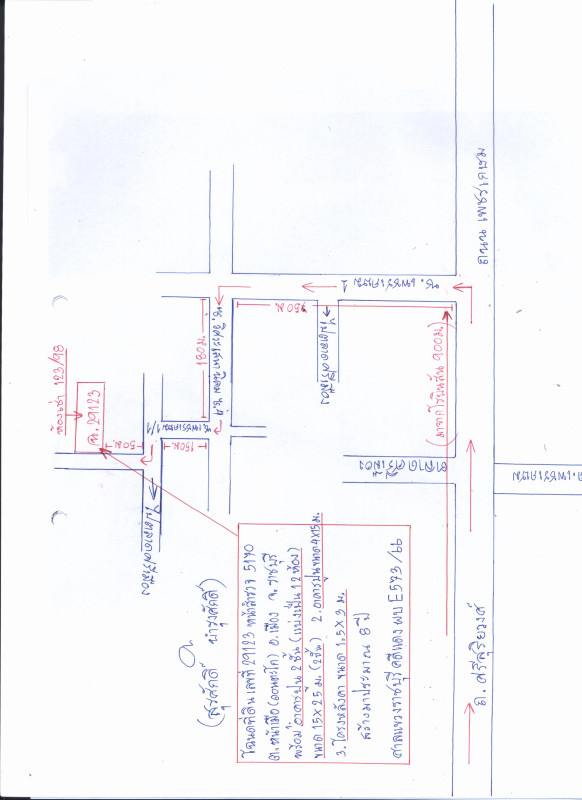 ห้องเช่า 123/98
ฉ. 29123
50 ม.
150 ม.
180 ม.
750 ม.
ซ. เพชรเกษม 1
ถนน เพชรเกษม
ไปตลาดศรีเมือง
ไปตลาดศรีเมือง
ตลาดศรีเมือง
(มาจากโรบินสัน 900 ม.)
ถ. เพชรเกษม
ถ. ศรีสุริยวงศ์
(สุรศักดิ์ บำรุงศักดิ์)
โฉนดที่ดิน เลขที่ 29123 หน้าสำรวจ 5170
ต. หน้าเมือง (ดอนตะโก) อ. เมือง จ. ราชบุรี
พร้อม 1. อาคารปูน 2 ชั้น (แบ่งเป็น 12 ห้อง)
ขนาด 15 x 25 ม. (2 ชั้น) 2. อาคารปูนขนาด 4x15 ม.
3. โครงหลังคา ขนาด 1.5 x 3 ม.
สร้างมาประมาณ 8 ปี
ศาลแขวงราชบุรี คดีแดง ผบ E573/66